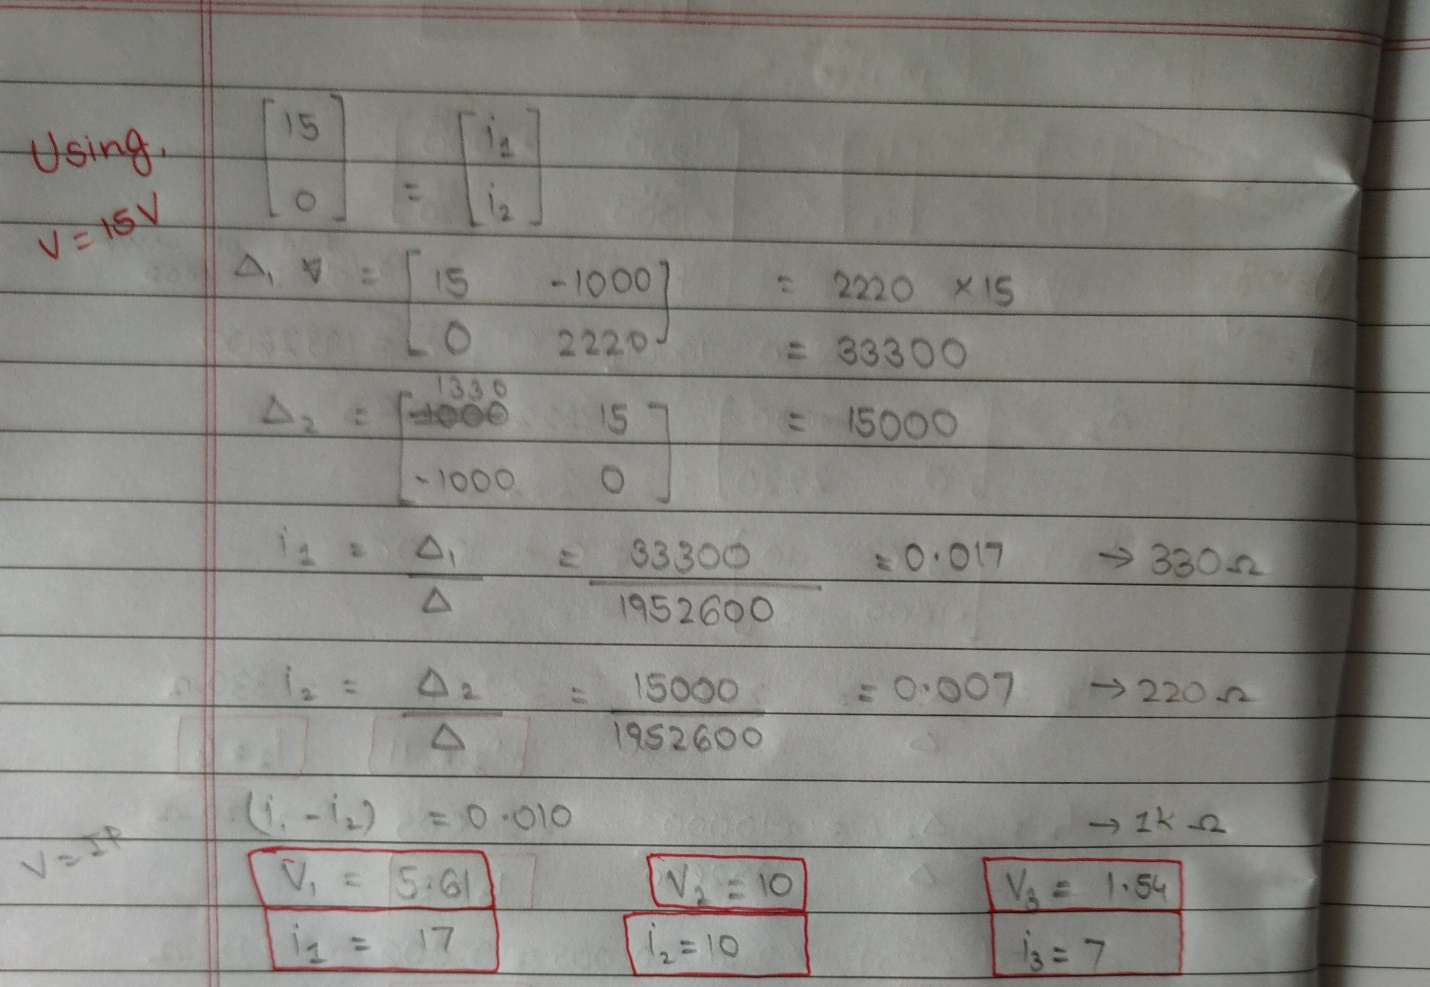 Using,
V = 15V
[15 0] = [i1 i2]
Δ1 = [15 -1000 = 2220 × 15
0 2220] = 33300
1330
Δ2 = [-1000 15 = 15000
-1000 0]
i1 = Δ1/Δ = 33300/1952600 = 0.017 → 330Ω
i2 = Δ2/Δ = 15000/1952600 = 0.007 → 220Ω
(i1 - i2) = 0.010 → 1kΩ
V = IR
V1 = 5.61 V2 = 10 V3 = 1.54
i1 = 17 i2 = 10 i3 = 7